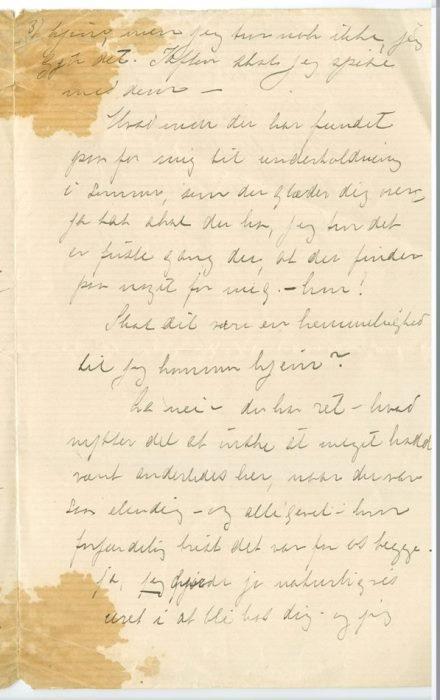 hjem, men jeg tror nok ikke, jeg
det. Iaften skal jeg spise
med dem —
Hvad mon du har fundet
paa for mig til underholdning
i sommer, som du glæder dig over,
ja tak skal du ha, jeg tror det
er første gang du, at du finder
paa noget for mig. — hvor!
Skal dit være en hemmelighed
til jeg kommer hjem?
Ja nei — du har ret — hvad
nytter det at ønske at meget hadde
vært anderledes her, naar du var
saa elendig — og alligevel — hvor
forfærdelig trist det var for os begge.
ja, jeg gjorde jo naturligvis
uret i at bli hos dig — og jeg